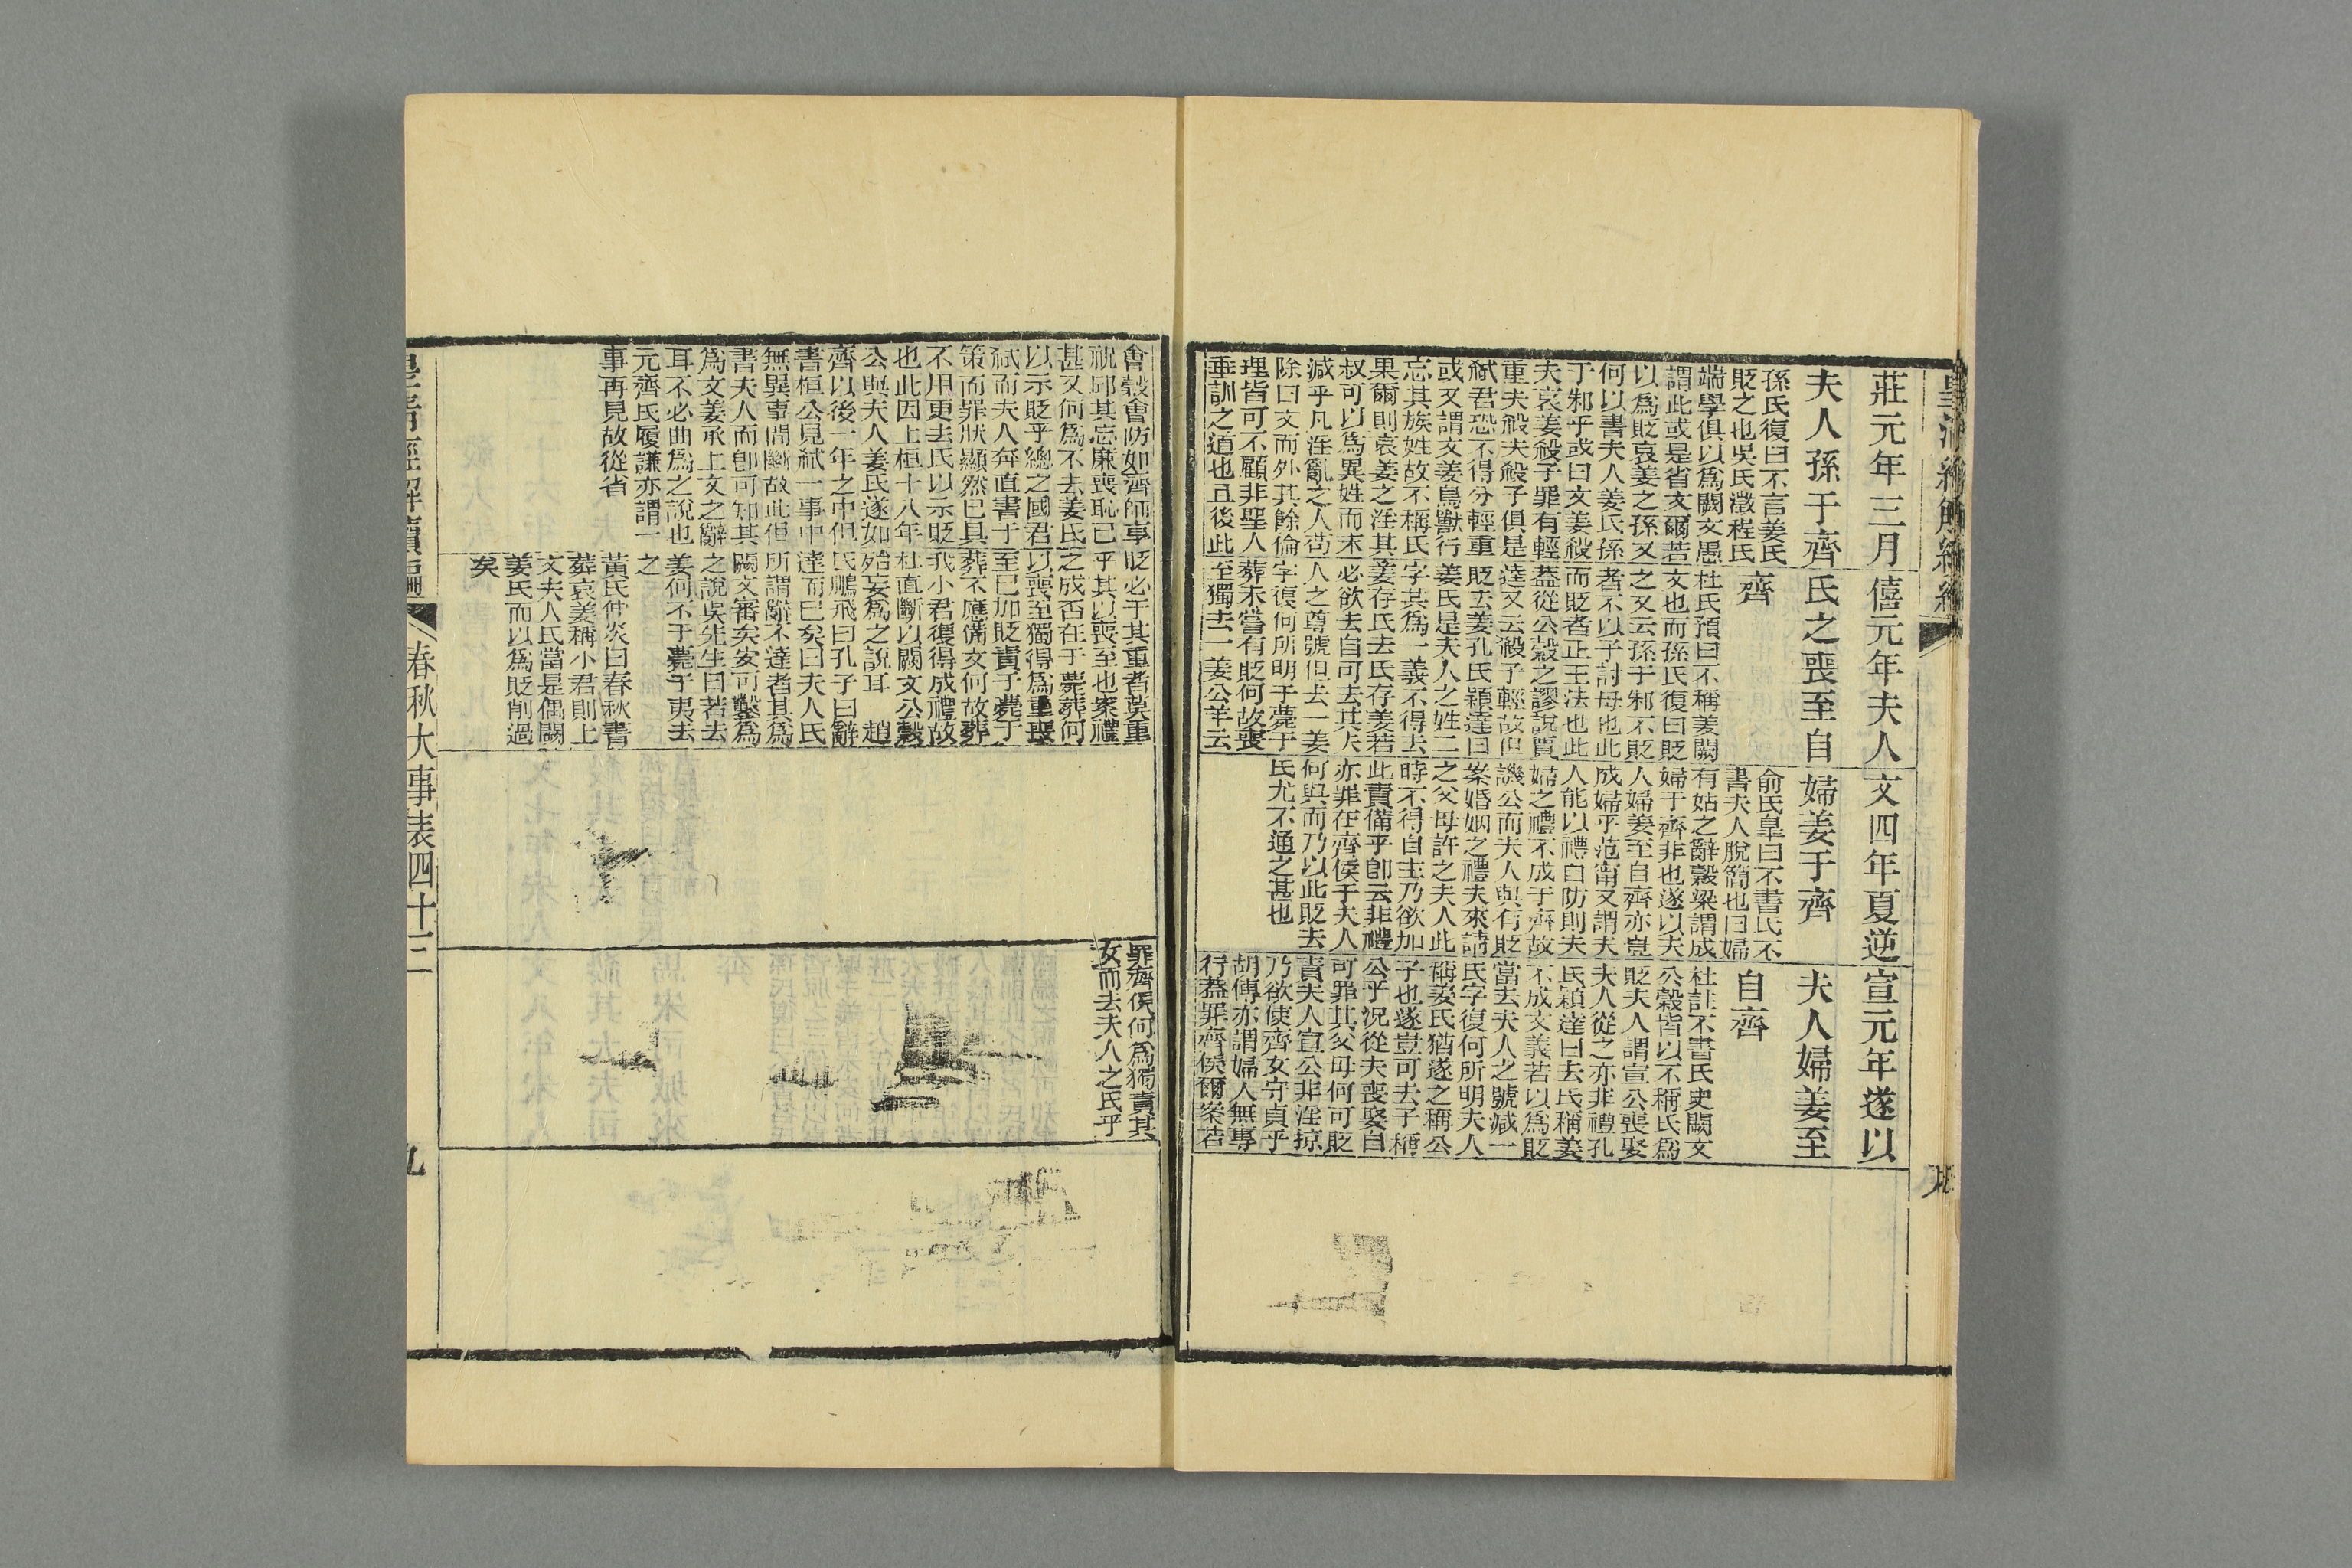 皇清經解續編
莊元年三月
夫人孫于齊
孫氏復曰不言姜氏
貶之也吳氏澂程氏
端學俱以為闕文愚
謂此或是省文爾若
以為貶哀姜之孫又
何以書夫人姜氏孫
于邾乎或曰文姜殺
夫哀姜殺子罪有輕
重夫殺夫殺子俱是
弒君恐不得分輕重
或又謂文姜鳥獸行
忘其族姓故不稱氏
果爾則哀姜之淫其
叔可以為異姓而末
減乎凡淫亂之人苟
除曰文而外其餘倫
理皆可不顧非聖人
垂訓之道也且後此
僖元年夫人
氏之喪至自
齊
杜氏預曰不稱姜闕
文也而孫氏復曰貶
之又云孫于邾不貶
者不以子討母也此
而貶者正王法也此
蓋從公穀之謬說賈
逵又云殺子輕故但
貶去姜孔氏穎達曰
姜氏是夫人之姓二
字其為一義不得去
姜存氏去氏存姜若
必欲去自可去其夫
人之尊號但去一姜
字復何所明于薨于
葬未嘗有貶何故喪
至獨去一姜公羊云
文四年夏逆
婦姜于齊
俞氏臯曰不書氏不
書夫人脫簡也曰婦
有姑之辭穀梁謂成
婦于齊非也遂以夫
人婦姜至自齊亦豈
成婦乎范甯又謂夫
人能以禮自防則夫
婦之禮不成于齊故
譏公而夫人與有貶
案婚姻之禮夫來請
之父母許之夫人此
時不得自主乃欲加
此責備乎卽云非禮
亦罪在齊侯于夫人
何與而乃以此貶去
氏尤不通之甚也
宣元年遂以
夫人婦姜至
自齊
杜註不書氏史闕文
公穀皆以不稱氏為
貶夫人謂宣公喪娶
夫人從之亦非禮孔
氏穎達曰去氏稱姜
不成文義若以為貶
當去夫人之號減一
氏字復何所明夫人
稱姜氏猶遂之稱公
子也遂豈可去子稱
公乎況從夫喪娶自
可罪其父母何可貶
責夫人宣公非淫掠
乃欲使齊女守貞乎
胡傳亦謂婦人無專
行蓋罪齊侯爾案若
會穀會防如齊師享
祝邱其忘廉喪恥已
甚又何為不去姜氏
以示貶乎總之國君
弒而夫人奔直書于
策而罪狀顯然已具
不用更去氏以示貶
也此因上桓十八年
公與夫人姜氏遂如
齊以後一年之中但
書桓公見弒一事中
無異事間斷故此但
書夫人而卽可知其
為文姜承上文之辭
耳不必曲為之說也
元齊氏履謙亦謂一
事再見故從省
貶必于其重者莫重
乎其以喪至也案禮
之成否在于薨葬何
以喪至獨得為重喪
至已加貶責于薨于
葬不應備文何故葬
我小君復得成禮故
杜直斷以闕文公穀
殆妄為之說耳　趙
氏鵬飛曰孔子曰辭
達而已矣曰夫人氏
所謂辭不達者其為
闕文審矣安可鑿為
之說吳先生曰若去
姜何不于薨于夷去
之
黃氏仲炎曰春秋書
葬哀姜稱小君則上
文夫人氏當是偶闕
姜氏而以為貶削過
矣
罪齊侯何為獨責其
女而去夫人之氏乎
皇清經解續編
春秋大事表四十三
九